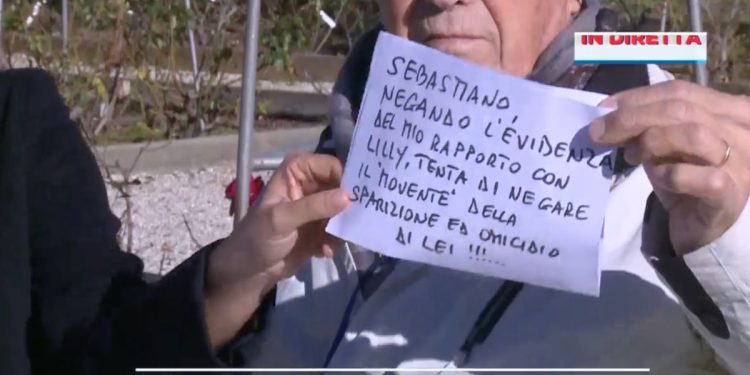 IN DIRETTA
SEBASTIANO,
NEGANDO L'EVIDENZA
DEL MIO RAPPORTO CON
LILLY, TENTA DI NEGARE
IL "MOVENTE" DELLA
SPARIZIONE ED OMICIDIO
DI LEI !!!....